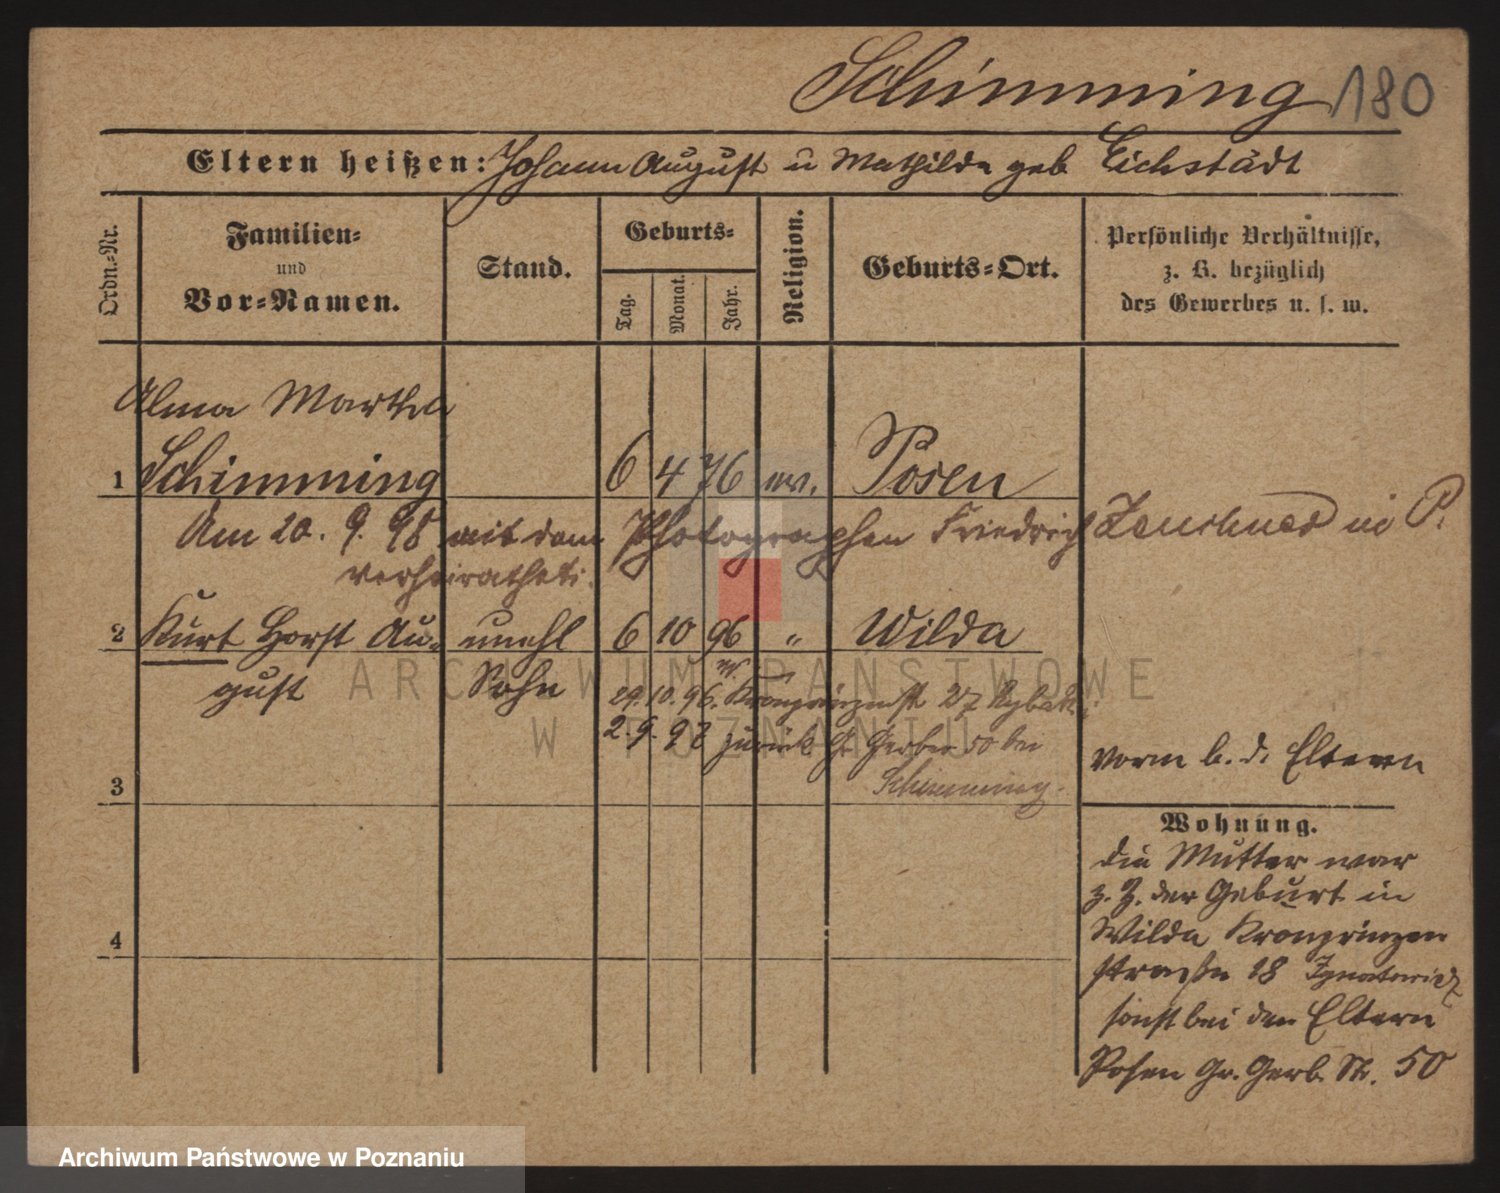 Schimming 180
Eltern heißen: Johann August u Mathilde geb Eichstädt
Ordn.-Nr.
Familien-
und
Vor-Namen.
Stand.
Geburts-
Tag.
Monat.
Jahr.
Religion.
Geburts-Ort.
Persönliche Verhältnisse,
z. B. bezüglich
des Gewerbes u. s. w.
Alma Martha
1 Schimming 6 4 76 ev. Posen
Am 20. 9. 98 mit dem Photographen Friedrich in P.
verheirathet.
2 Kurt Horst Au- unehl 6 10 96 " Wilda
gust Sohn
29.10.96. Kronprinzenst 27
2.9.97 zurück Gr Gerber 50 bei
Schimming.
3
4
vorm b. d. Eltern
Wohnung.
die Mutter war
z. Z. der Geburt in
Wilda Kronprinzen
straße 18
sonst bei den Eltern
Posen Gr. Gerb. Str. 50
ARCHIWUM PAŃSTWOWE
W POZNANIU
Archiwum Państwowe w Poznaniu